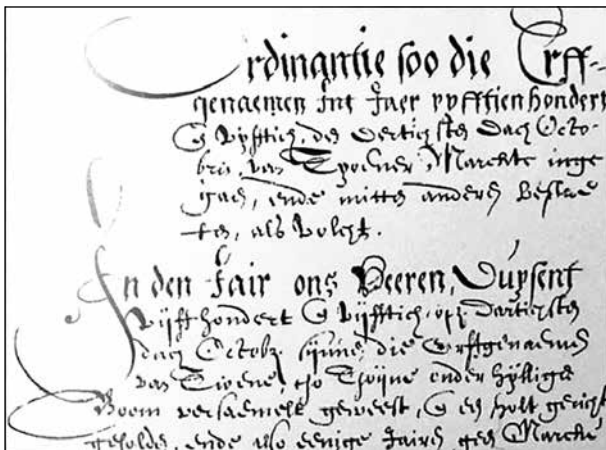 Ordinantie soo die Erff-
genaemen Int Jaer vyfftien hondert
& vyfftich, den dertichsten dach Octo-
bris, van Marckte inge
gaen, ende mitten anderen beslae
ten, als volcht.
In den Jair ons Heeren, Duysent
Vijffhondert & vijfftich, opten dartichsten
dach Octobr. sijnne die Erffgenaemen
van onder hyllige
Boom versaemelt geweest, & en holt gericht
geholden, ende also eenige Jairen geen Marckt